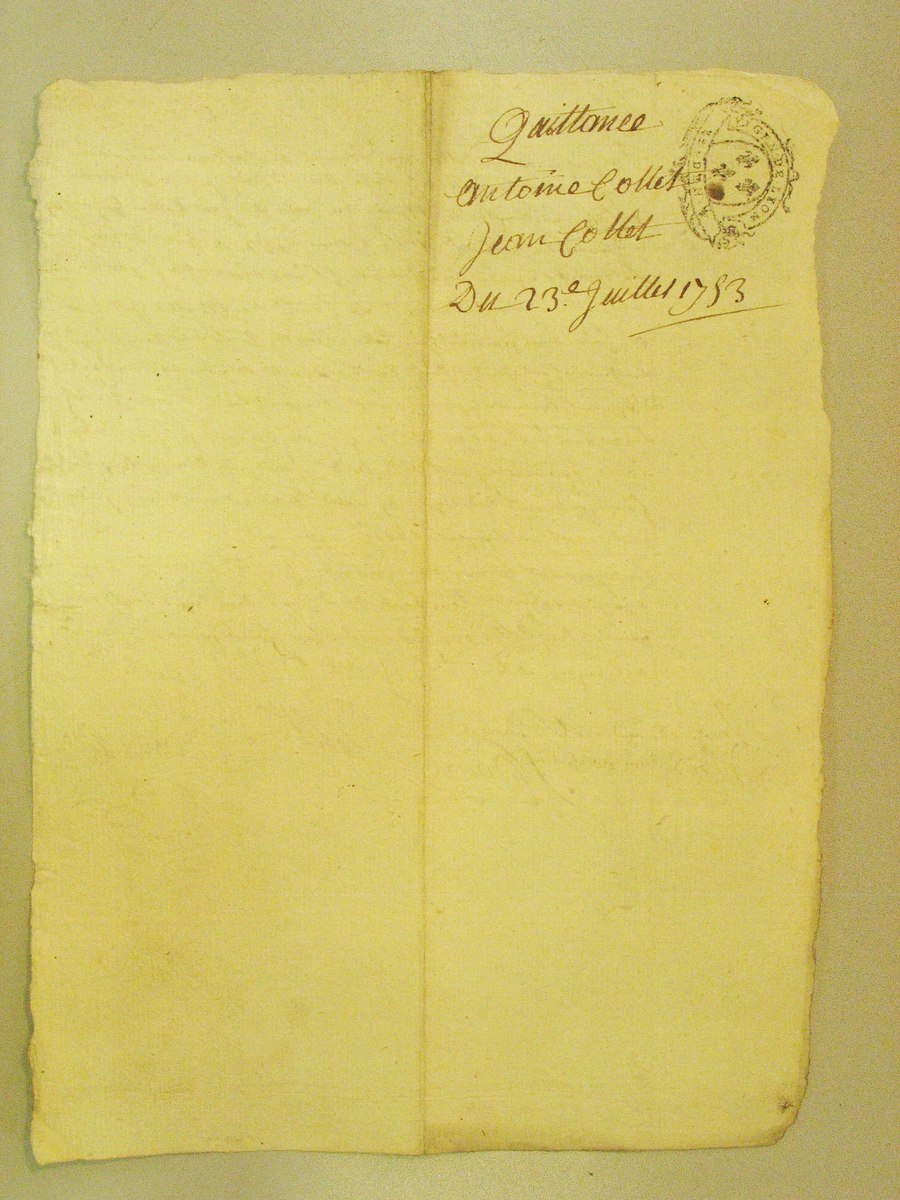 Quittance
Antoine Collet
Jean Collet
Du 23.e Juillet 1753
GEN DE LYON